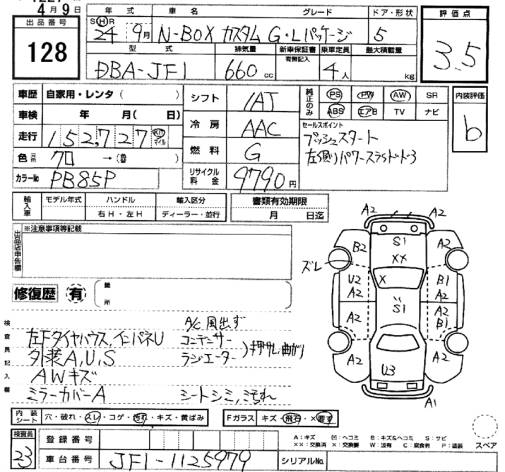 4月9日
出品番号
128
年式 車名 グレード ドア・形状
SHR 24年 9月 N-BOX カスタム G・Lパッケージ 5
型式 排気量 新車保証書 有無記入 乗車定員 最大積載量
DBA-JF1 660cc 4人 kg
評価点
3.5
車歴 自家用・レンタ( )
車検 年 月( 日)
走行 152,727 Km マイル
色 70 →( )
カラーNo PB85P
シフト IAT
冷房 AAC
燃料 G
リサイクル料金 9790円
純正のみ PS PW AW SR
ABS エアB TV ナビ
内装評価
b
セールスポイント
プッシュスタート
輸入車 モデル年式 ハンドル 右H・左H 輸入区分 ディーラー・並行
書類有効期限 月 日迄
出品店申告欄 ※注意事項等記載
修復歴 有 箇所
検査員記入欄
左Fタイヤハウス、インパネU
外装A,U,S
AWキズ
ミラーカバーA
A/C風出ず
コンデンサー
ラジエーター
シートシミ、こもれ
A2 A2
ズレ B2 S1 A2
XX
U2 X B1
A2 S1 A2
A2 B1
A2 A2
U3
A1
内装シート 穴・破れ・スレ・コゲ・汚れ・キズ・黄ばみ
Fガラス キズ・飛石・X
検査員 23
登録番号
車台番号 JF1-1125979
シリアルNo.
A:キズ U:ヘコミ B:キズ&ヘコミ S:サビ
スペア